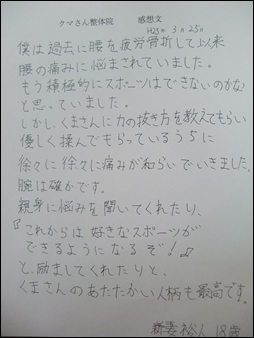 クマさん整体院 感想文
H25年 3月25日
僕は過去に腰を疲労骨折して以来
腰の痛みに悩まされていました。
もう積極的にスポーツはできないのかな
と思っていました。
しかし、くまさんに力の抜き方を教えてもらい
優しく揉んでもらっているうちに
徐々に徐々に痛みが和らいでいきました。
腕は確かです。
親身に悩みを聞いてくれたり、
『これからは好きなスポーツが
できるようになるぞ!』
と、励ましてくれたりと、
くまさんのあたたかい人柄も最高です。
新妻 裕人 18歳